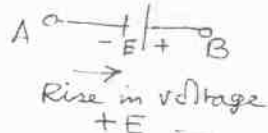 A - E + B
Rise in voltage
+E